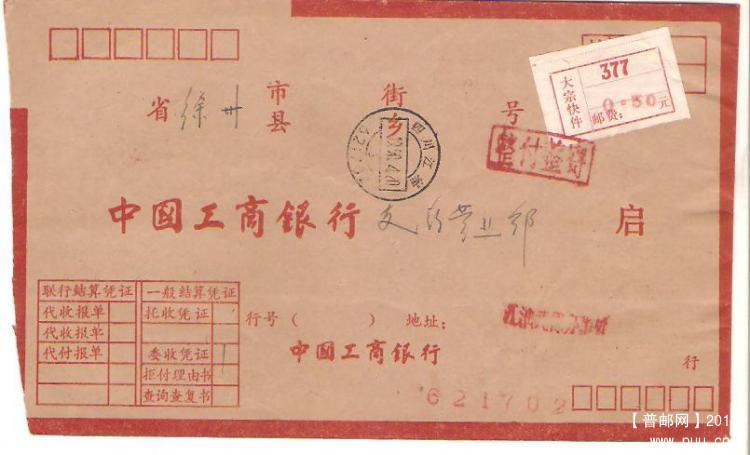 377
大宗快件
0.50元
邮费:
省 徐州 市县 街乡 号
四川江油
整付益寄
中国工商銀行 营业部 启
联行结算凭证 一般结算凭证
代收报单 托收凭证
代收报单
代付报单 委收凭证
拒付理由书
查询查复书
行号( ) 地址:
中国工商銀行
行
621702
【普邮网】201
www.puu.cn